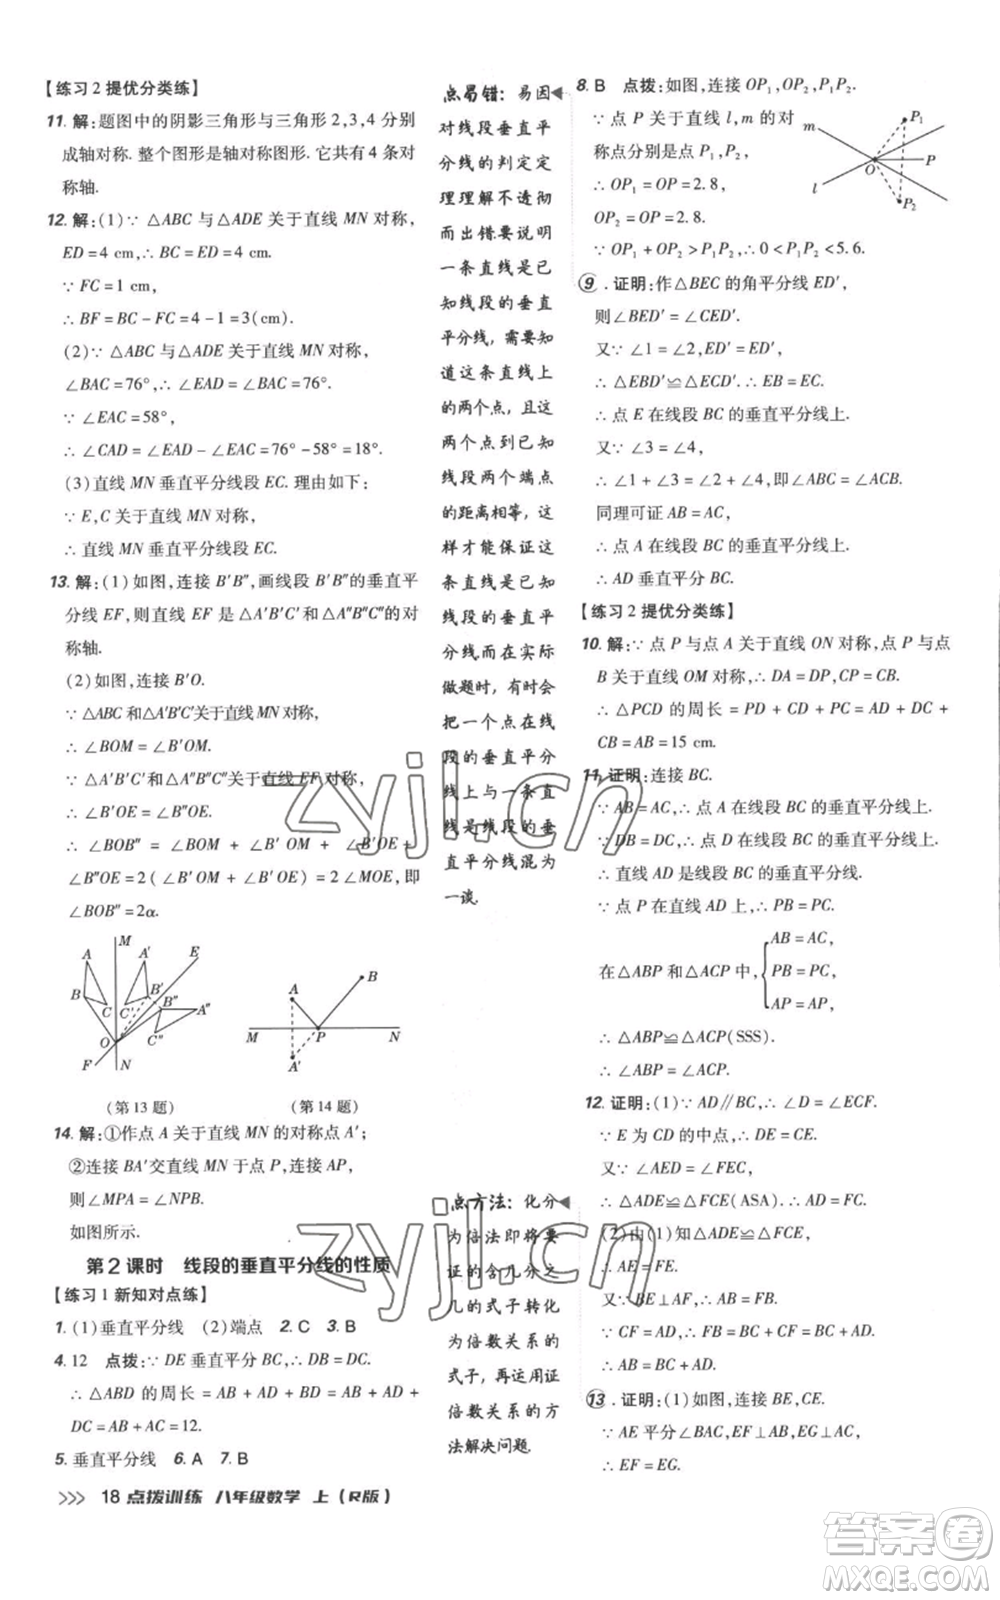 【练习2提优分类练】
11.解:题图中的阴影三角形与三角形2,3,4分别
成轴对称.整个图形是轴对称图形.它共有4条对
称轴.
12.解:(1)∵△ABC与△ADE关于直线MN对称,
ED=4 cm,∴BC=ED=4 cm.
∵FC=1 cm,
∴BF=BC-FC=4-1=3(cm).
(2)∵△ABC与△ADE关于直线MN对称,
∠BAC=76°,∴∠EAD=∠BAC=76°.
∵∠EAC=58°,
∴∠CAD=∠EAD-∠EAC=76°-58°=18°.
(3)直线MN垂直平分线段EC.理由如下:
∵E,C关于直线MN对称,
∴直线MN垂直平分线段EC.
13.解:(1)如图,连接B′B″,画线段B′B″的垂直平
分线EF,则直线EF是△A′B′C′和△A″B″C″的对
称轴.
(2)如图,连接B′O.
∵△ABC和△A′B′C′关于直线MN对称,
∴∠BOM=∠B′OM.
∵△A′B′C′和△A″B″C″关于直线EF对称,
∴∠B′OE=∠B″OE.
∴∠BOB″=∠BOM+∠B′OM+∠B′OE+
∠B″OE=2(∠B′OM+∠B′OE)=2∠MOE,即
∠BOB″=2α.
M
A
A′
E
B
B′
B″
C
C′
A″
C″
O
F
N
(第13题)
B
A
M
P
N
A′
(第14题)
14.解:①作点A关于直线MN的对称点A′;
②连接BA′交直线MN于点P,连接AP,
则∠MPA=∠NPB.
如图所示.
第2课时 线段的垂直平分线的性质
【练习1新知对点练】
1.(1)垂直平分线 (2)端点 2.C 3.B
4.12 点拨:∵DE垂直平分BC,∴DB=DC.
∴△ABD的周长=AB+AD+DB=AB+AD+
DC=AB+AC=12.
5.垂直平分线 6.A 7.B
>>> 18 点拨训练 八年级数学 上(R版)
点易错:易因
对线段垂直平
分线的判定定
理理解不透彻
而出错.要说明
一条直线是已
知线段的垂直
平分线,需要知
道这条直线上
的两个点,且这
两个点到已知
线段两个端点
的距离相等,这
样才能保证这
条直线是已知
线段的垂直平
分线.而在实际
做题时,有时会
把一个点在线
段的垂直平分
线上与一条直
线是线段的垂
直平分线混为
一谈.
点方法:化分
为倍法即将要
证的含几分之
几的式子转化
为倍数关系的
式子,再运用证
倍数关系的方
法解决问题.
8.B 点拨:如图,连接OP₁,OP₂,P₁P₂.
∵点P关于直线l,m的对
称点分别是点P₁,P₂,
∴OP₁=OP=2.8,
OP₂=OP=2.8.
∵OP₁+OP₂>P₁P₂,∴0<P₁P₂<5.6.
m
P₁
O
P
l
P₂
9.证明:作△BEC的角平分线ED′,
则∠BED′=∠CED′.
又∵∠1=∠2,ED′=ED′,
∴△EBD′≌△ECD′.∴EB=EC.
∴点E在线段BC的垂直平分线上.
又∵∠3=∠4,
∴∠1+∠3=∠2+∠4,即∠ABC=∠ACB.
同理可证AB=AC,
∴点A在线段BC的垂直平分线上.
∴AD垂直平分BC.
【练习2提优分类练】
10.解:∵点P与点A关于直线ON对称,点P与点
B关于直线OM对称,∴DA=DP,CP=CB.
∴△PCD的周长=PD+CD+PC=AD+DC+
CB=AB=15 cm.
11.证明:连接BC.
∵AB=AC,∴点A在线段BC的垂直平分线上.
∵DB=DC,∴点D在线段BC的垂直平分线上.
∴直线AD是线段BC的垂直平分线.
∵点P在直线AD上,∴PB=PC.
在△ABP和△ACP中,{AB=AC,
PB=PC,
AP=AP,
∴△ABP≌△ACP(SSS).
∴∠ABP=∠ACP.
12.证明:(1)∵AD∥BC,∴∠D=∠ECF.
∵E为CD的中点,∴DE=CE.
又∵∠AED=∠FEC,
∴△ADE≌△FCE(ASA).∴AD=FC.
(2)由(1)知△ADE≌△FCE,
∴AE=FE.
又∵BE⊥AF,∴AB=FB.
∵CF=AD,∴AD+BC=CF+BC=FB.
∴AB=BC+AD.
13.证明:(1)如图,连接BE,CE.
∵AE平分∠BAC,EF⊥AB,EG⊥AC,
∴EF=EG.
zyjl.cn
zyjl.cn
答案圈
MXQE.COM